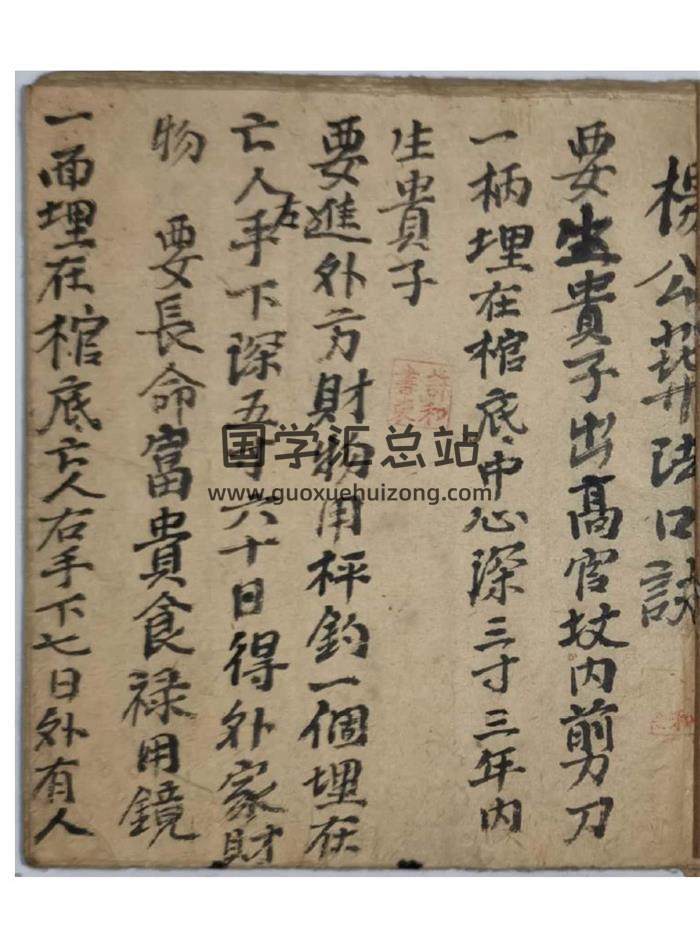 楊公葬法口訣
要生貴子出高官坟内剪刀
一柄埋在棺底中心深三寸三年内
生貴子
要進外方財物用枰鈎一個埋在
亡人左手下深五寸六十日得外家財
物 要長命富貴食禄用鏡
一面埋在棺底亡人右手下七日外有人
国学汇总站
www.guoxuehuizong.com